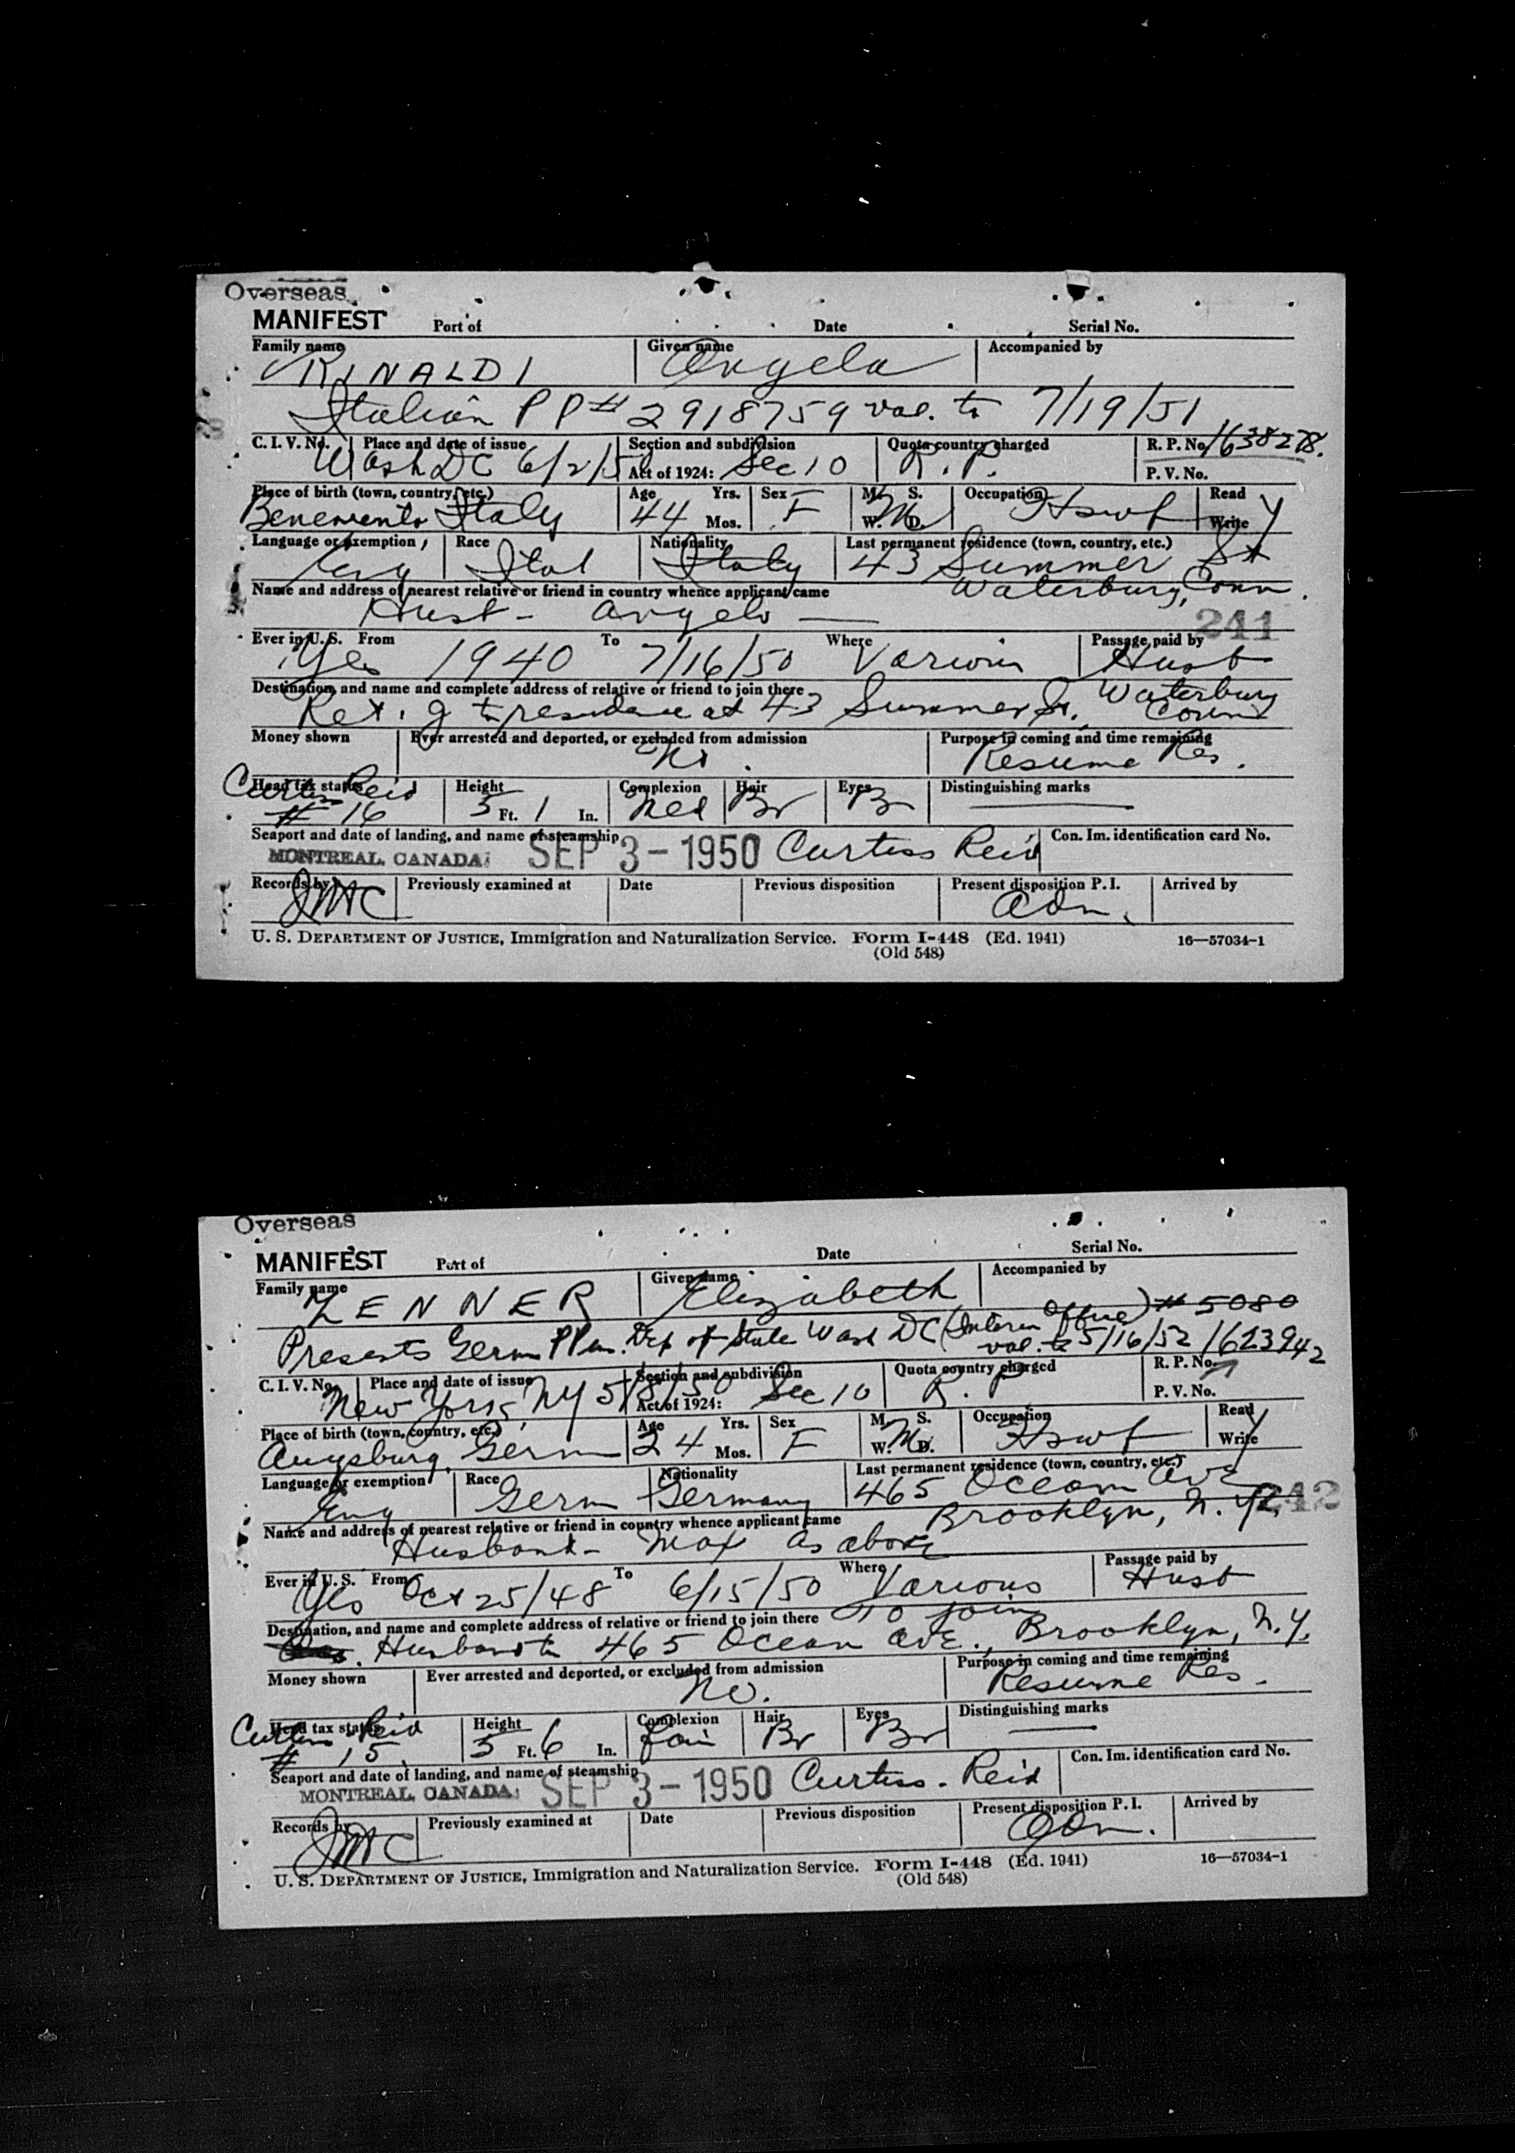 Overseas
MANIFEST Port of Date Serial No.
Family name Given name Accompanied by
RINALDI Angela
Italian PP# 2918759 val. to 7/19/51
C. I. V. No. Place and date of issue Section and subdivision Quota country charged R. P. No. 1638278.
Wash DC 6/2/50 Act of 1924: Sec 10 R. P. P. V. No.
Place of birth (town, country, etc.) Age Yrs. Sex M. S. Occupation Read
Benevento Italy 44 Mos. F W. M D. Hswf Write Y
Language or exemption Race Nationality Last permanent residence (town, country, etc.)
Eng Ital Italy 43 Summer St
Name and address of nearest relative or friend in country whence applicant came Waterbury, Conn.
Hust - Angelo
241
Ever in U. S. From To Where Passage paid by
Yes 1940 7/16/50 Various Husb
Destination, and name and complete address of relative or friend to join there
Ret. g to residence at 43 Summer St. Waterbury Conn
Money shown Ever arrested and deported, or excluded from admission Purpose in coming and time remaining
No. Resume Res.
Head tax status Height Complexion Hair Eyes Distinguishing marks
Curtiss Reid # 16 5 Ft. 1 In. Med Br Br
Seaport and date of landing, and name of steamship Con. Im. identification card No.
MONTREAL, CANADA SEP 3 - 1950 Curtiss Reid
Records by Previously examined at Date Previous disposition Present disposition P. I. Arrived by
JMC Adm.
U. S. DEPARTMENT OF JUSTICE, Immigration and Naturalization Service. Form I-448 (Ed. 1941) 16—57034-1
(Old 548)
Overseas
MANIFEST Port of Date Serial No.
Family name Given name Accompanied by
ZENNER Elizabeth
Presents Germ PP iss. Dep of State Wash DC (Interim Office) # 5080
val. to 5/16/52 1623942
C. I. V. No. Place and date of issue Section and subdivision Quota country charged R. P. No.
New York, NY 5/8/50 Act of 1924: Sec 10 R. P P. V. No.
Place of birth (town, country, etc.) Age Yrs. Sex M. S. Occupation Read
Augsburg, Germ 24 Mos. F W. M D. Hswf Write Y
Language or exemption Race Nationality Last permanent residence (town, country, etc.)
Eng Germ Germany 465 Ocean Ave
242
Name and address of nearest relative or friend in country whence applicant came Brooklyn, N. Y.
Husband - Max as above
Ever in U. S. From To Where Passage paid by
Yes Oct 25/48 6/15/50 Various Husb
Destination, and name and complete address of relative or friend to join there To join
Husband to 465 Ocean Ave., Brooklyn, N. Y.
Money shown Ever arrested and deported, or excluded from admission Purpose in coming and time remaining
No. Resume Res.
Head tax status Height Complexion Hair Eyes Distinguishing marks
Curtiss Reid # 15 5 Ft. 6 In. Fair Br Br
Seaport and date of landing, and name of steamship Con. Im. identification card No.
MONTREAL, CANADA SEP 3 - 1950 Curtiss - Reid
Records by Previously examined at Date Previous disposition Present disposition P. I. Arrived by
JMC Adm.
U. S. DEPARTMENT OF JUSTICE, Immigration and Naturalization Service. Form I-448 (Ed. 1941) 16—57034-1
(Old 548)